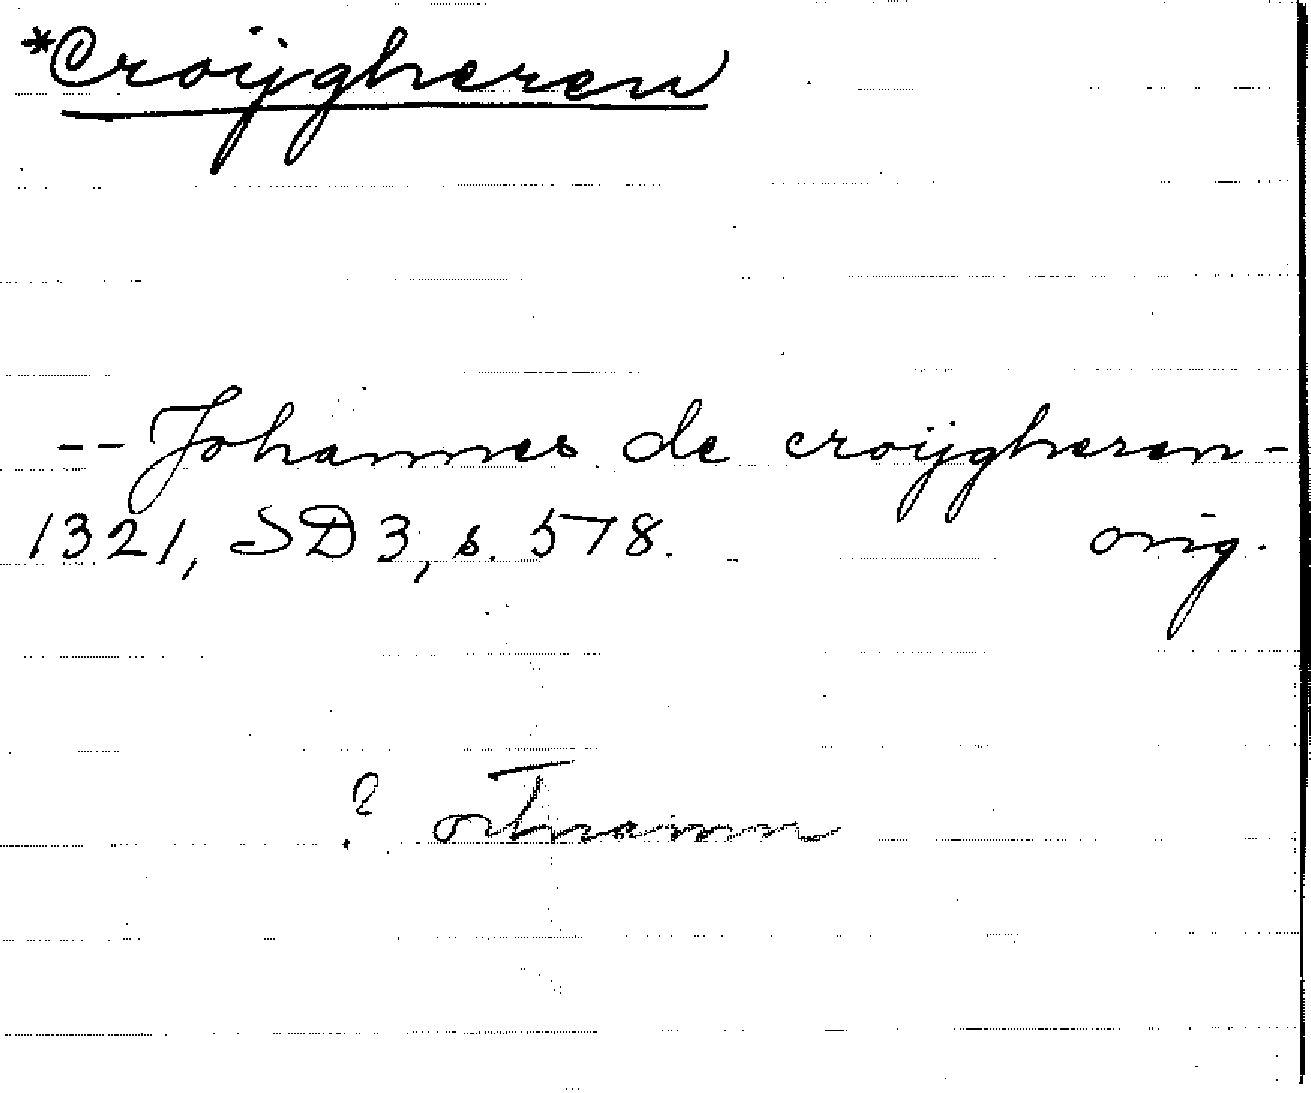 *Croijgheren
-- Johannes de croijgheren -
1321, SD 3, s. 578. orig.
? ortnamn